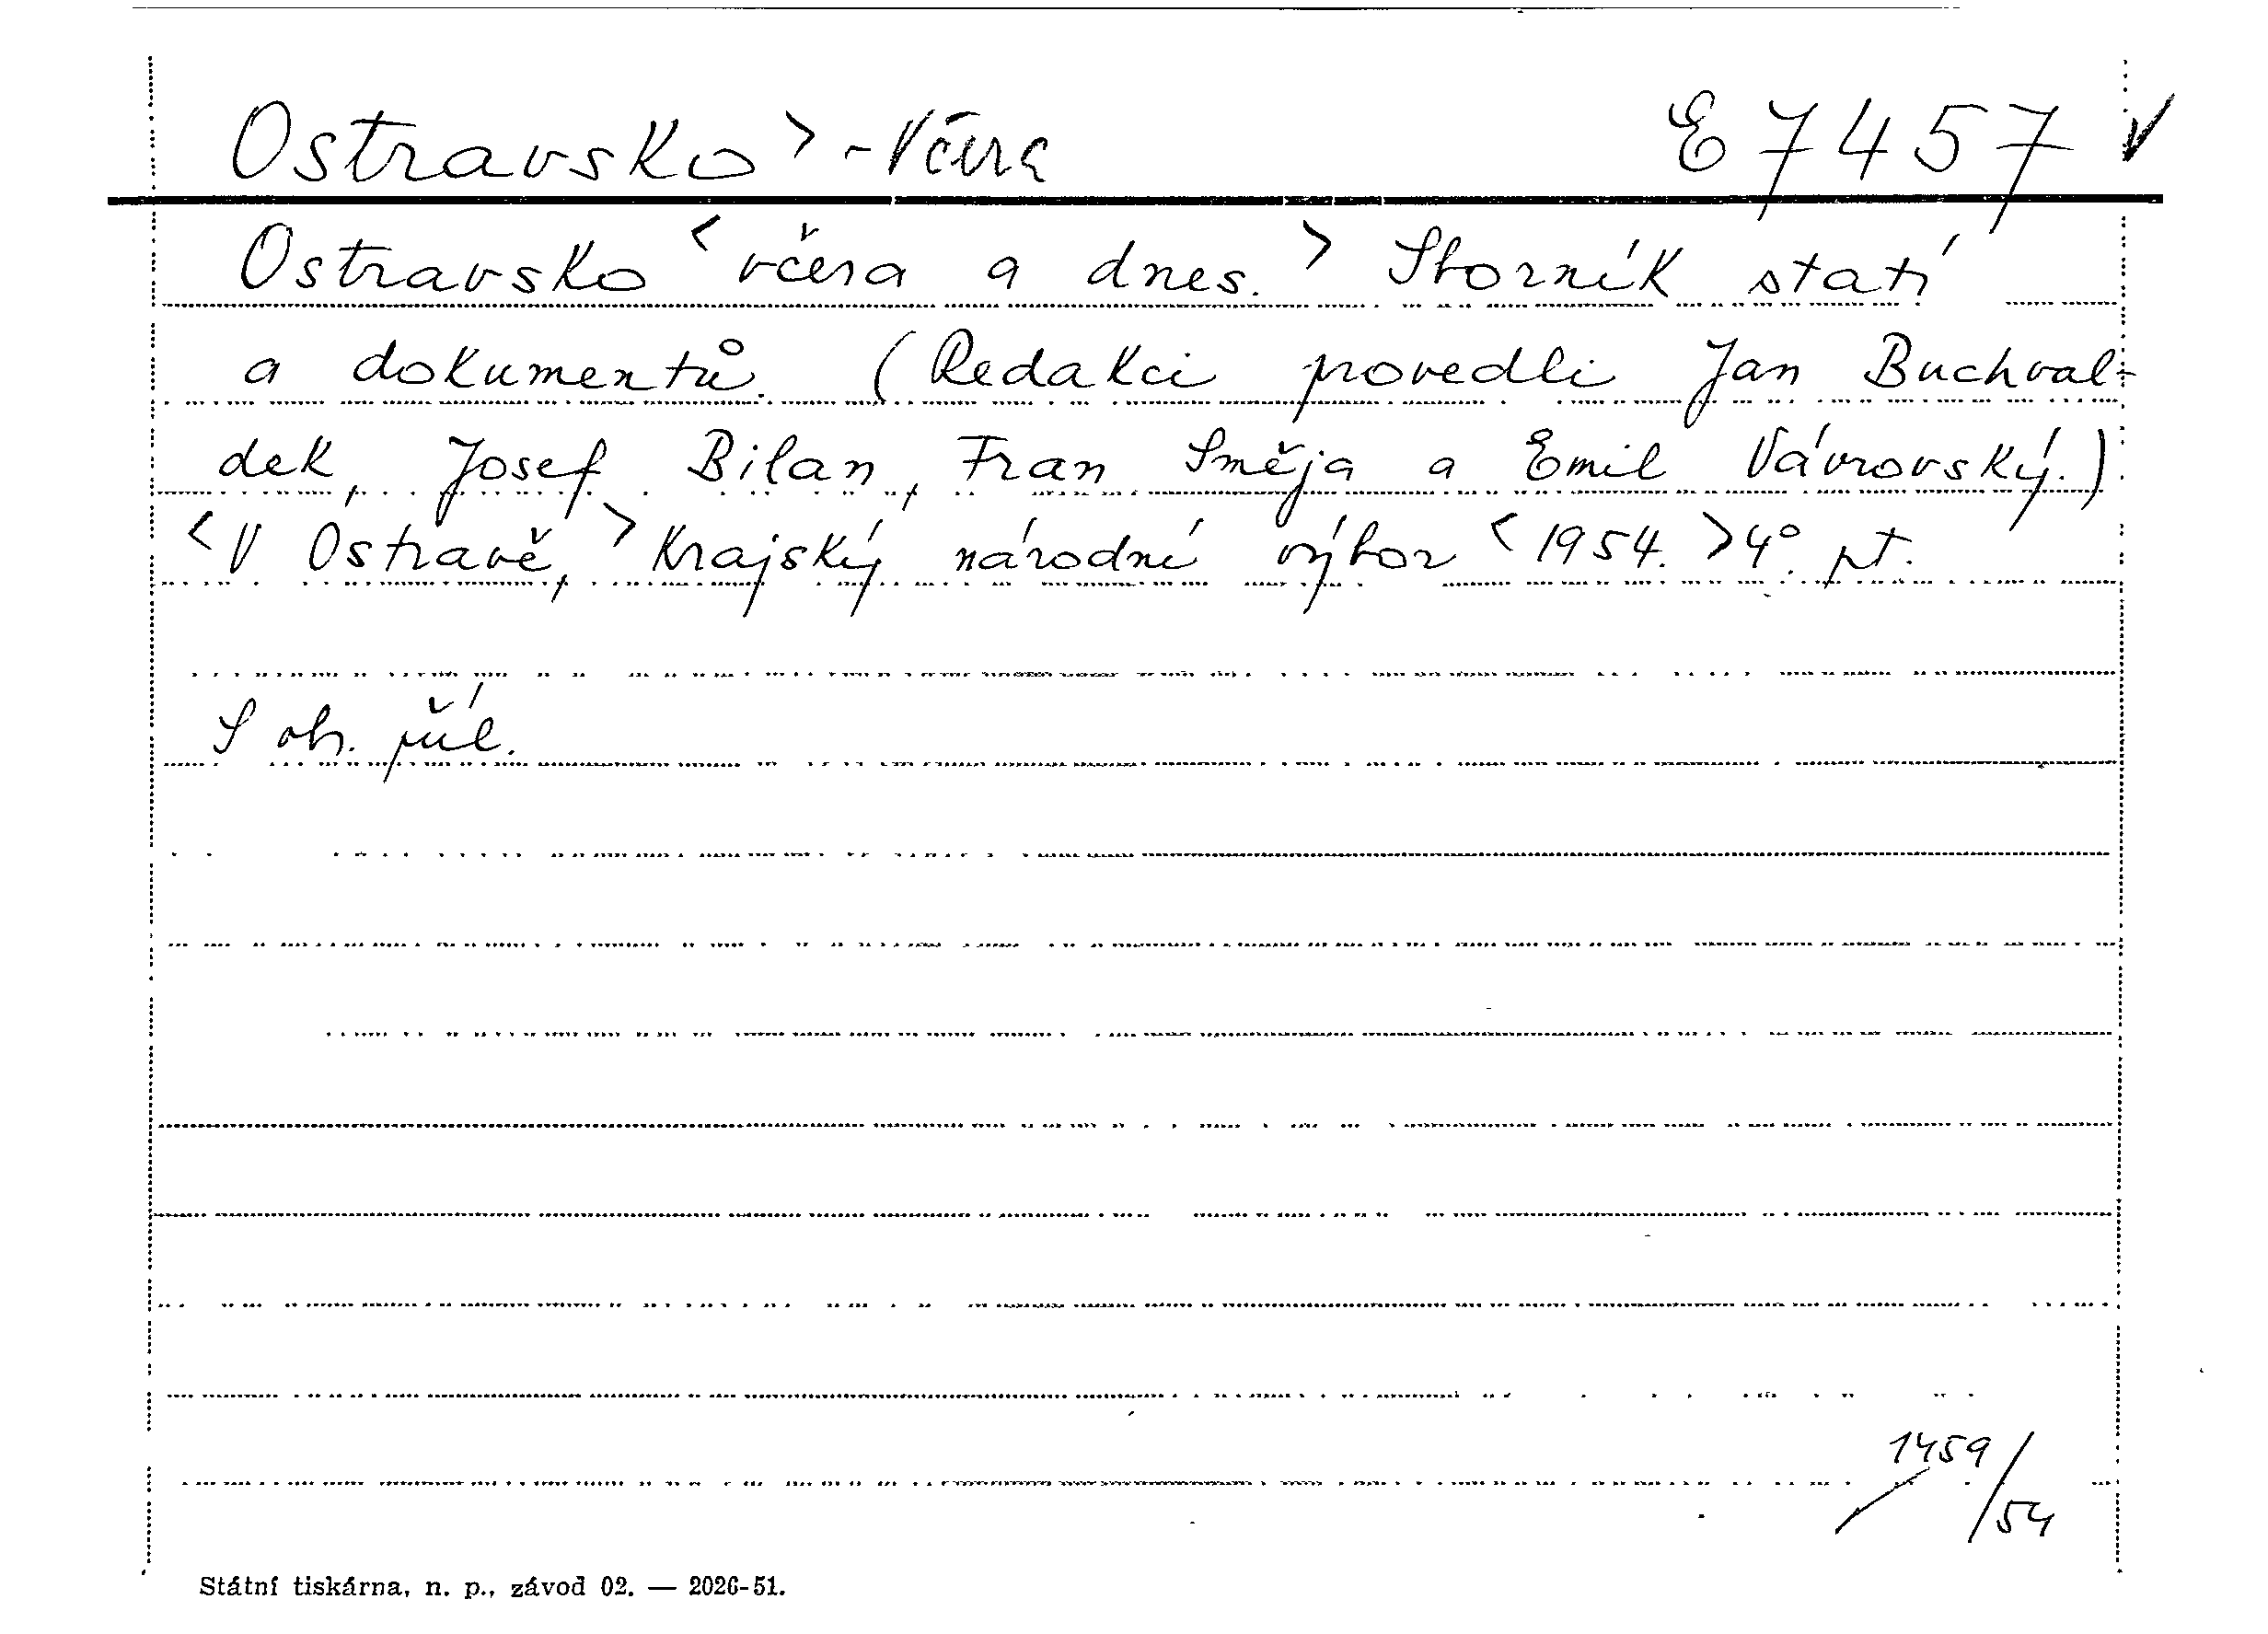 Ostravsko > - Včera E 7457 ✓
Ostravsko < včera a dnes. > Sborník statí
a dokumentů. (Redakci provedli Jan Buchval-
dek, Josef Bilan, Fran Směja a Emil Vávrovský.)
< V Ostravě, > Krajský národní výbor < 1954. > 4°. pt.
S ob. příl.
1459/54
Státní tiskárna, n. p., závod 02. — 2026-51.